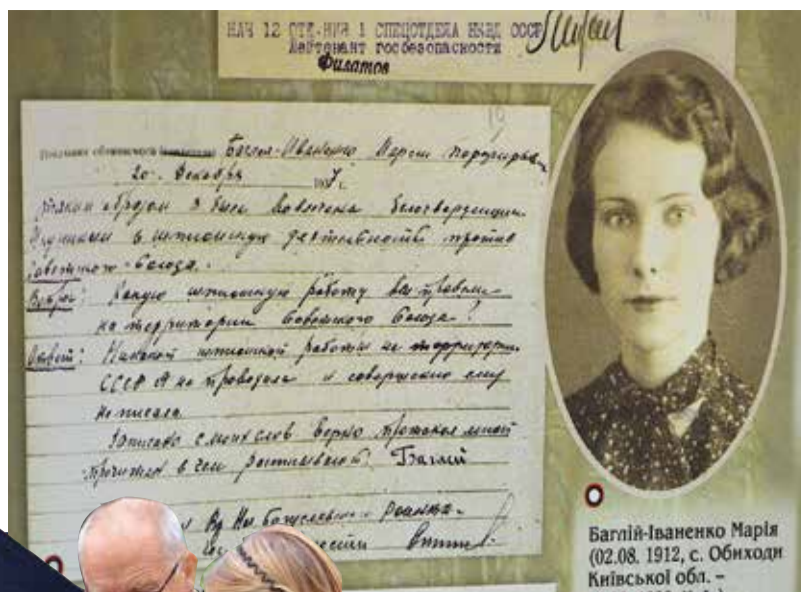 НАЧ 12 ОТД-НИЯ 1 СПЕЦОТДЕЛА НКВД СССР
Лейтенант госбезопасности
Филатов
19
Баглей-Иваненко Марии
20. декабря
образом я была вовлечена белогвардейцами
в шпионскую деятельность против
Советского Союза.
Вопрос: Какую шпионскую работу вы
на территории Советского Союза?
Ответ: Никакой шпионской работы на территории
СССР я не проводила и совершенно
не писала
Записано с моих слов верно протокол мной
прочитан в чем расписываюсь: Баглей
Баглій-Іваненко Марія
(02.08. 1912, с. Обиходи
Київської обл. –